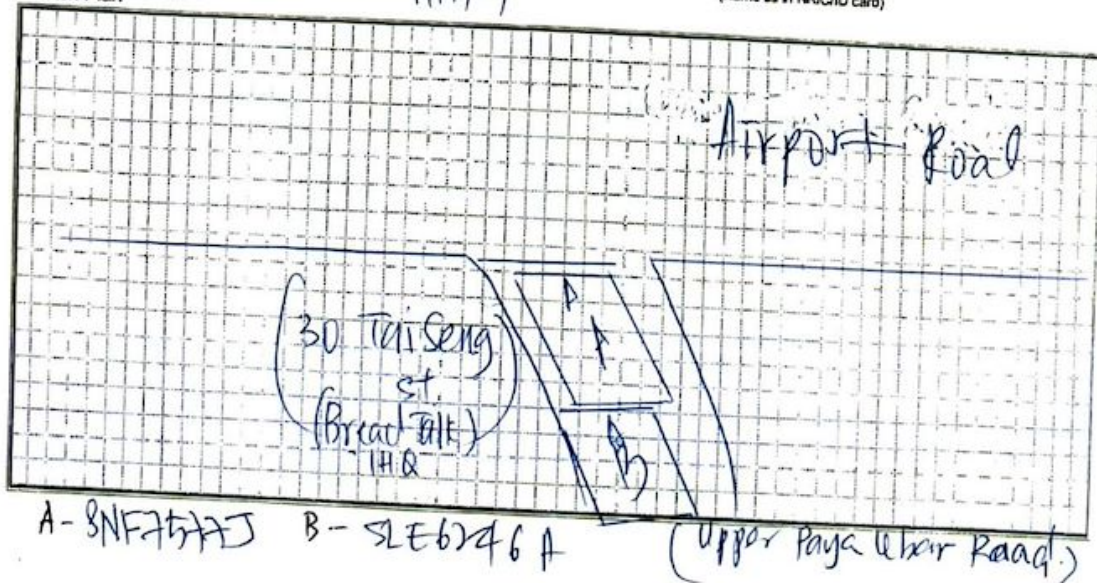 (Name as in NRIC/ID card)
Airport Road
30 Tai Seng
st.
(Bread Talk)
IHQ
A
B
A - SNF7577J B - SLE6246A (Upper Paya Lebar Road.)